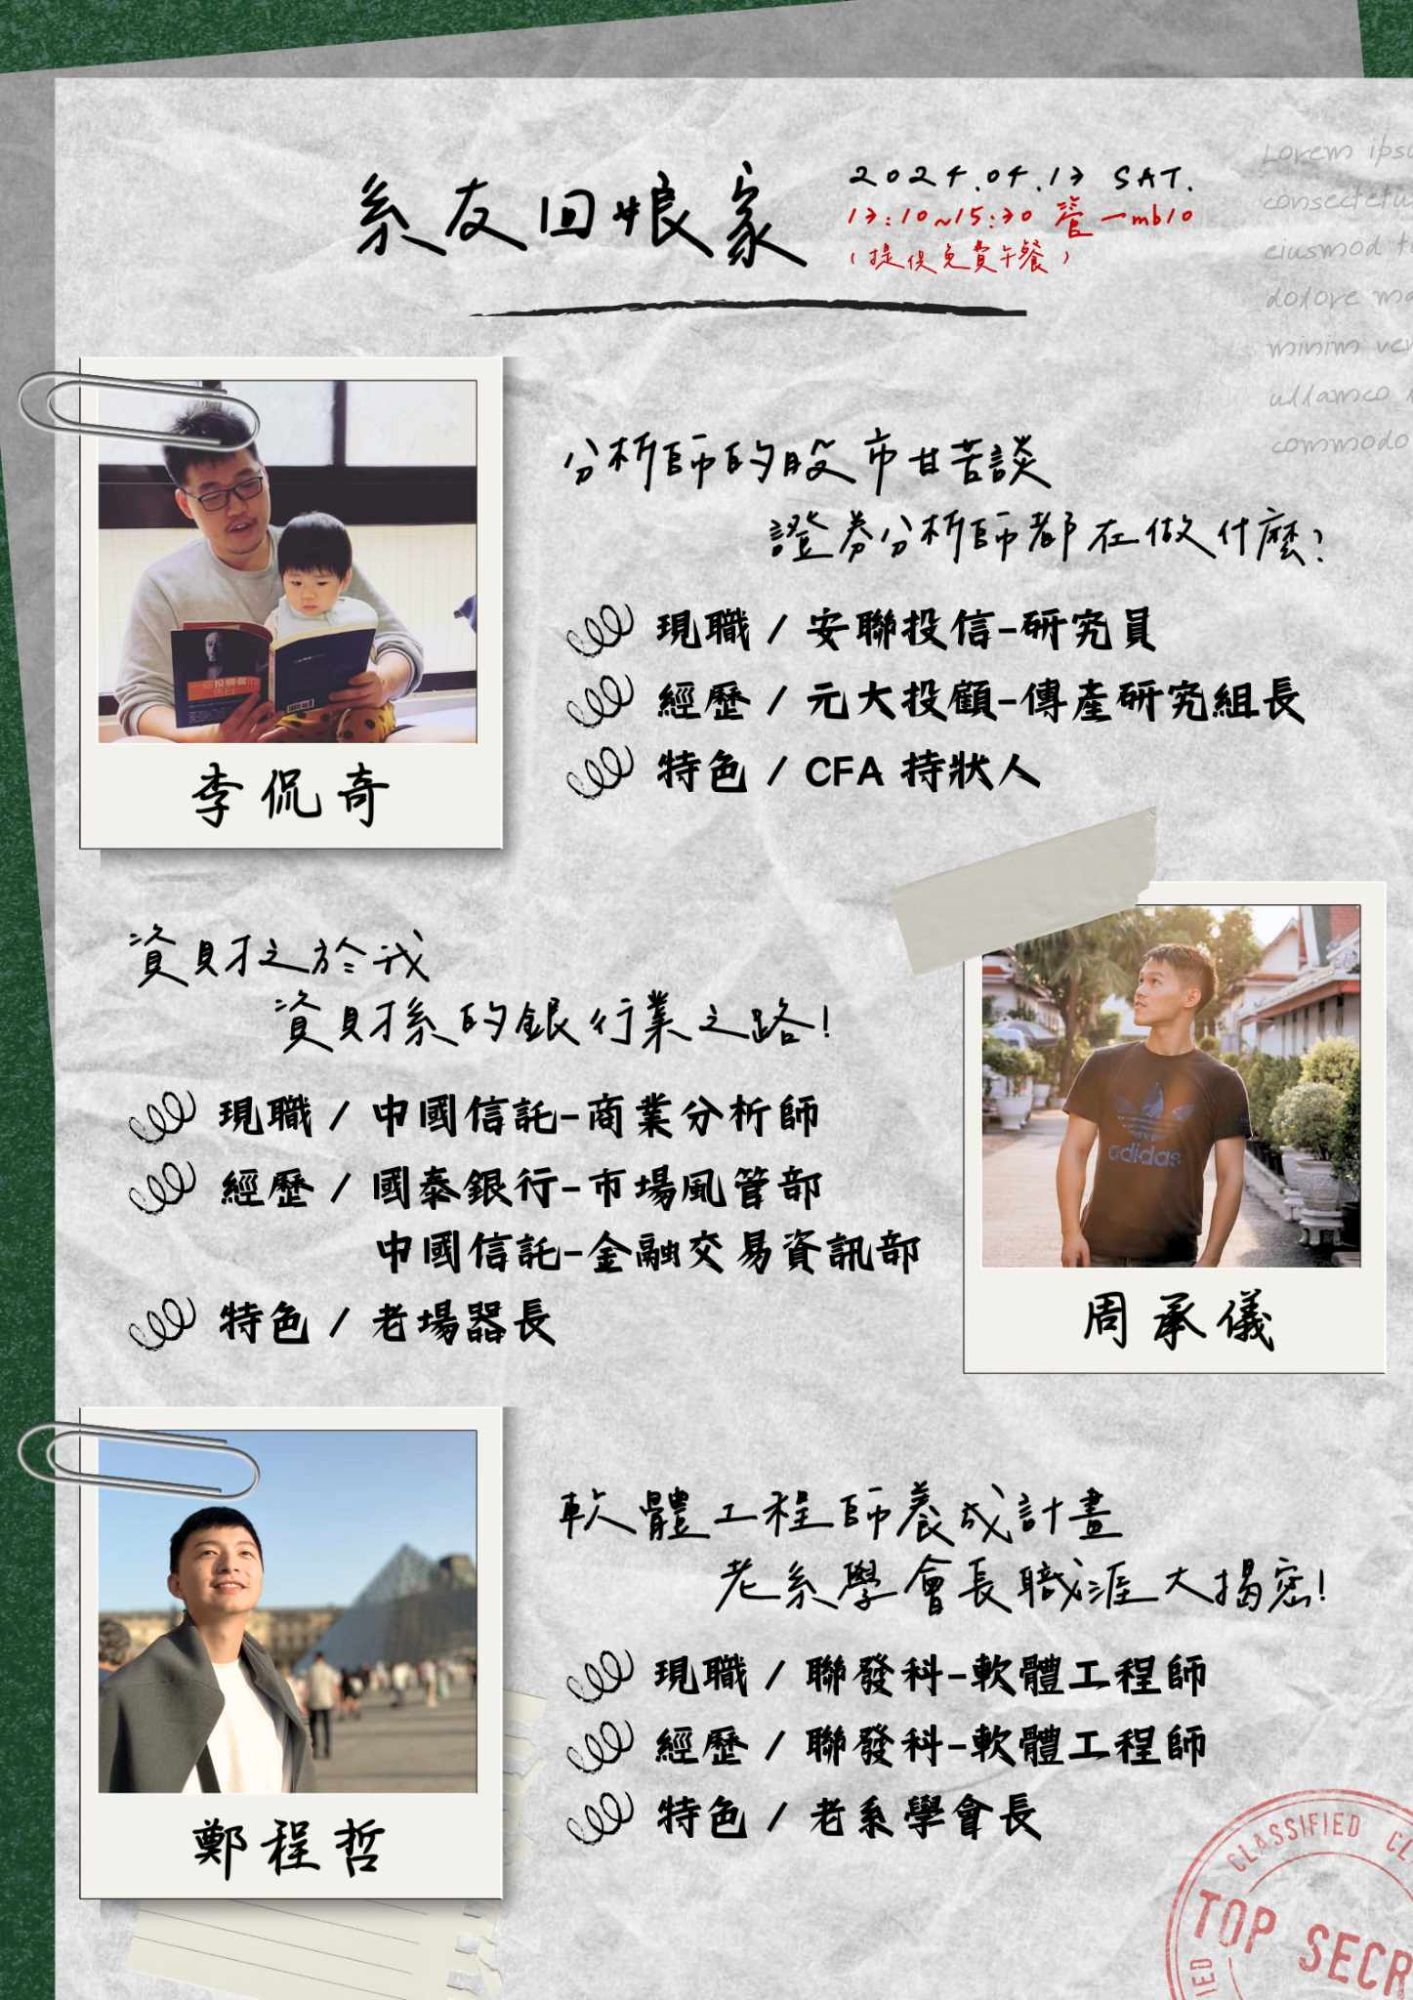 系友回娘家
2024.04.13 SAT.
13:10~15:30 管一mb10
(提供免費午餐)
Lorem ipsu
consectetu
eiusmod t
dolore ma
minim ve
ullamco
commodo
分析師的股市甘苦談
證券分析師都在做什麼?
現職 / 安聯投信-研究員
經歷 / 元大投顧-傳產研究組長
特色 / CFA 持狀人
李侃奇
資財之於我
資財系的銀行業之路!
現職 / 中國信託-商業分析師
經歷 / 國泰銀行-市場風管部
中國信託-金融交易資訊部
特色 / 老場器長
周承儀
adidas
軟體工程師養成計畫
老系學會長職涯大揭密!
現職 / 聯發科-軟體工程師
經歷 / 聯發科-軟體工程師
特色 / 老系學會長
鄭程哲
CLASSIFIED CL
TOP SECR
IED